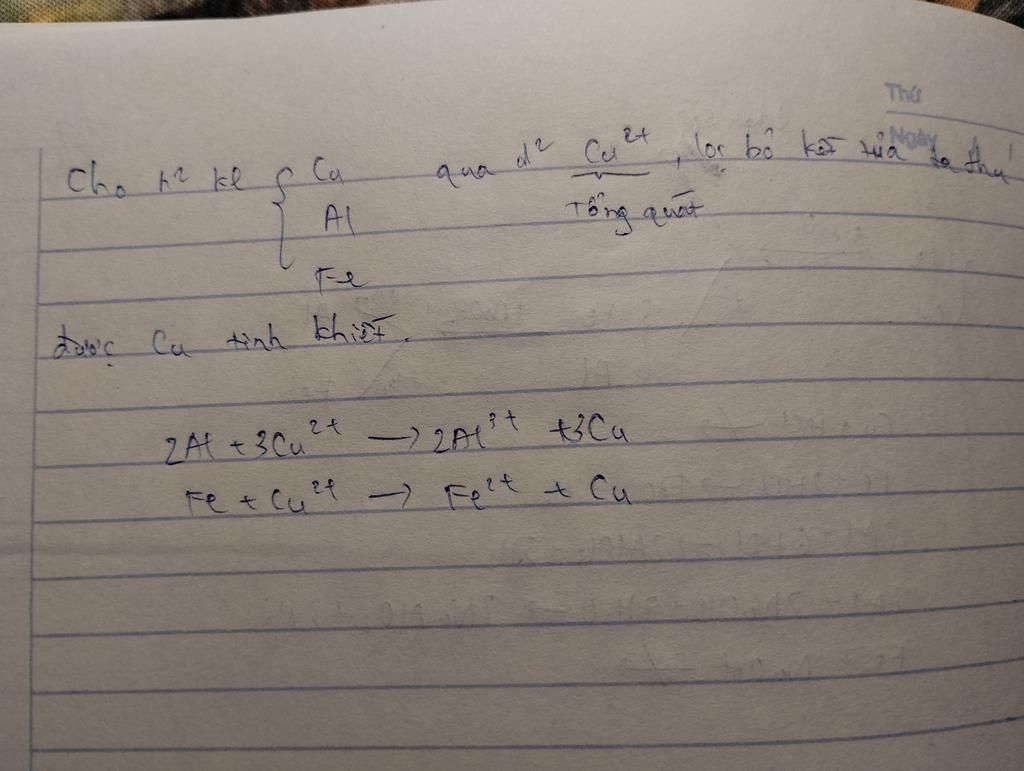 Thứ
Ngày
Cho h² kl { Cu qua d² Cu²⁺, lọc bỏ kết tủa ta thu
Al Tổng quát
Fe
được Cu tinh khiết.
2Al + 3Cu²⁺ → 2Al³⁺ + 3Cu
Fe + Cu²⁺ → Fe²⁺ + Cu